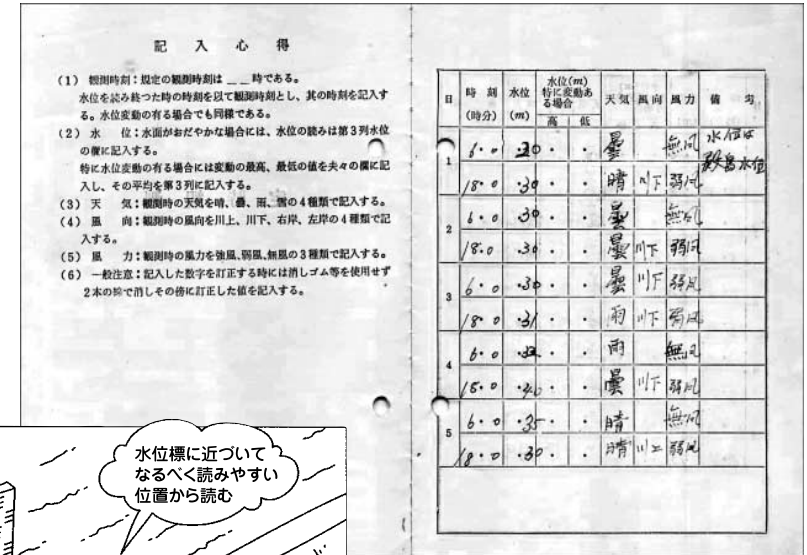 記入心得
(1) 観測時刻：規定の観測時刻は__時である。
水位を読み終つた時の時刻を以て観測時刻とし、其の時刻を記入す
る。水位変動の有る場合でも同様である。
(2) 水　位：水面がおだやかな場合には、水位の読みは第3列水位
の欄に記入する。
特に水位変動の有る場合には変動の最高、最低の値を夫々の欄に記
入し、その平均を第3列に記入する。
(3) 天　気：観測時の天気を晴、曇、雨、雪の4種類で記入する。
(4) 風　向：観測時の風向を川上、川下、右岸、左岸の4種類で記
入する。
(5) 風　力：観測時の風力を強風、弱風、無風の3種類で記入する。
(6) 一般注意：記入した数字を訂正する時には消しゴム等を使用せず
2本の線で消しその傍に訂正した値を記入する。
日 時刻(時分) 水位(m) 水位(m)特に変動ある場合 高 低 天気 風向 風力 備
1 6.0 .30 . . 曇 無風 水位は
水位
18.0 .30 . . 晴 川下 弱風
2 6.0 .30 . . 曇 無風
18.0 .30 . . 曇 川下 弱風
3 6.0 .30 . . 曇 川下 弱風
18.0 .31 . . 雨 川下 弱風
4 6.0 . . 雨 無風
18.0 .40 . . 曇 川下 弱風
5 6.0 .35 . . 晴 無風
18.0 .30 . . 晴 川上 弱風
水位標に近づいて
なるべく読みやすい
位置から読む